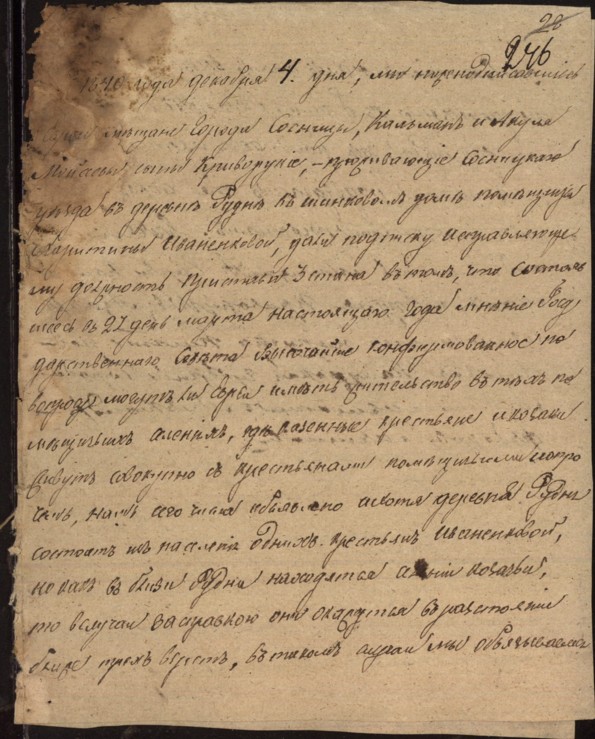 28
246
1840 года декабря 4. дня, мы нижеподписавшіесь
мещане города Сосницы, Кальманъ и Янкель
Криворукие, – проживающіе Сосницкаго
уезда въ деревнѣ Руднѣ въ шинковомъ домѣ помѣщицы
Харитины Иваненковой, дали подписку исправляюще
му должность Пристава 3 стана въ томъ, что состояв
шеесь въ 22 день марта настоящаго года мнѣніе Госу
дарственнаго Совѣта Высочайше конфирмованное по
вопросу могутъ ли евреи имѣть жительство въ тѣхъ по
мѣщичьихъ селеніяхъ, где казенные крестьяне и козаки
живутъ совокупно съ крестьянами помѣщичьими и про
чемъ, намъ сего числа объявлено а хотя деревня Рудня
состоитъ изъ населенія однихъ крестьянъ Иваненковой,
но какъ въ близи Рудни находятся селеніи козачьи,
то въ случаи за справкою они окажутся въ разстояніи
ближе трехъ верстъ, въ такомъ случаи мы обязываемся